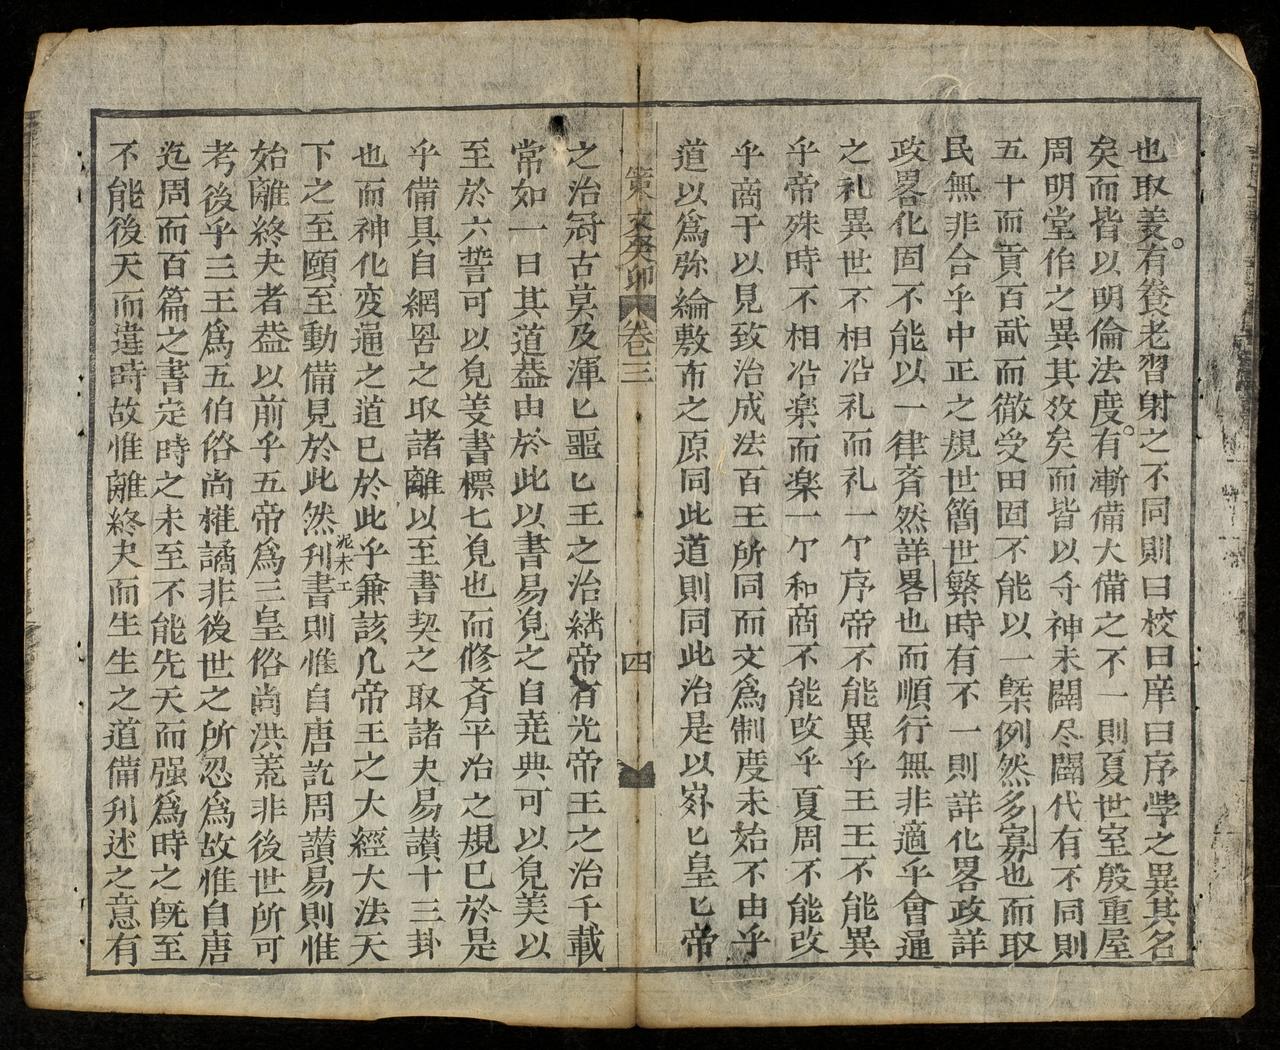 也取羙有養老習射之不同則曰校曰庠曰序斈之異其名
矣而皆以明倫法度有漸備大備之不一則夏世室殷重屋
周明堂作之異其教矣而皆以守神未闢尽闢代有不同則
五十而貢百畝而徹受田固不能以一槩例然多寡也而取
民無非合乎中正之規世簡世繁時有不一則詳化畧政詳
政畧化固不能以一律斉然詳畧也而順行無非適乎會通
之礼異世不相沿礼而礼一亇序帝不能異乎王王不能異
乎帝殊時不相沿楽而楽一亇和商不能改乎夏周不能改
乎商于以見致治成法百王所同而文爲制度未始不由乎
道以爲弥綸敷布之原同此道則同此治是以嵾匕皇匕帝
策文癸卯 卷三 四
之治冠古莫及渾匕噩匕王之治繙帝有光帝王之治千載
常如一日其道葢由於此以書易覓之自堯典可以覓美以
至於六誓可以覓羙書標七覓也而修斉平治之規已於是
乎備具自網罟之取諸離以至書契之取諸夬易讃十三卦
也而神化变通之道已於此乎兼該凡帝王之大經大法天
下之至頤至動備見於此然刋書則惟自唐訖周讃易則惟
泥木工
始離終夬者葢以前乎五帝爲三皇俗尚洪荒非後世所可
考後乎三王爲五伯俗尚權譎非後世之所忍爲故惟自唐
迄周而百篇之書定時之未至不能先天而强爲時之旣至
不能後天而違時故惟離終夬而生生之道備刋述之意有